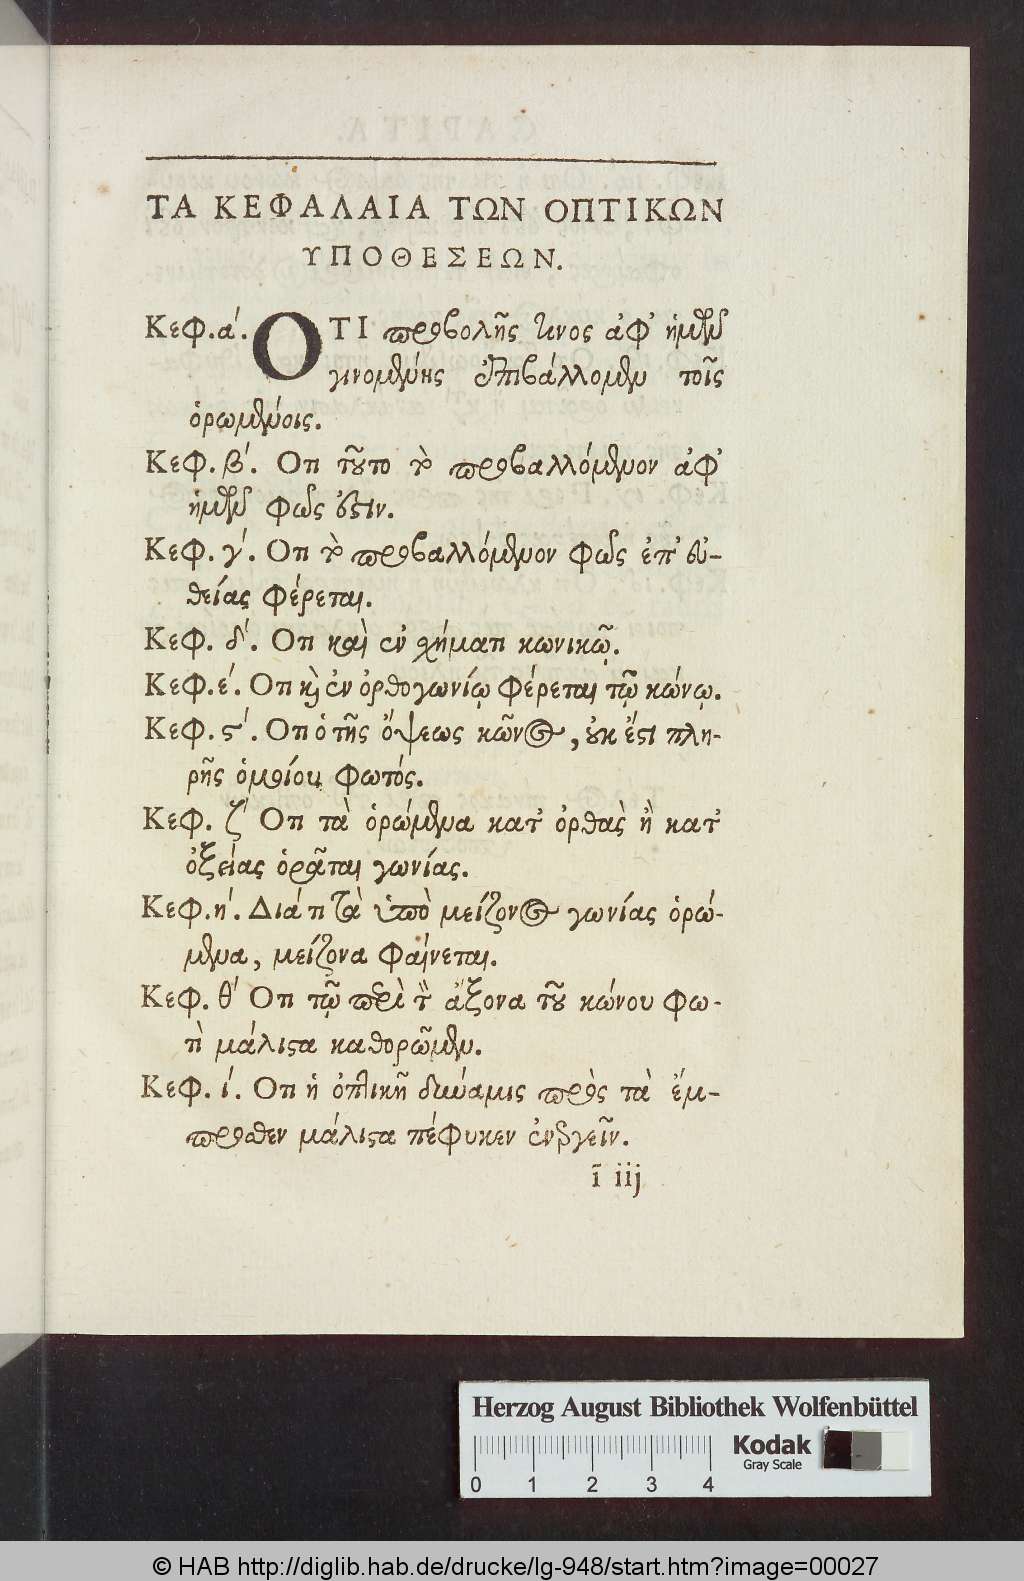 ΤΑ ΚΕΦΑΛΑΙΑ ΤΩΝ ΟΠΤΙΚΩΝ
ΥΠΟΘΕΣΕΩΝ.
Κεφ. α΄. ΟΤΙ προβολῆς τινος ἀφ᾽ ἡμῶν
γινομένης ἐπιβάλλομεν τοῖς
ὁρωμένοις.
Κεφ. β΄. Οτι τοῦτο τὸ προβαλλόμενον ἀφ᾽
ἡμῶν φῶς ἐστιν.
Κεφ. γ΄. Οτι τὸ προβαλλόμενον φῶς ἐπ᾽ εὐ-
θείας φέρεται.
Κεφ. δ΄. Οτι καὶ ἐν σχήματι κωνικῷ.
Κεφ. ε΄. Οτι καὶ ἐν ὀρθογωνίῳ φέρεται τῷ κώνῳ.
Κεφ. ς΄. Οτι ὁ τῆς ὄψεως κῶνος, οὐκ ἔστι πλη-
ρῆς ὁμοίου φωτός.
Κεφ. ζ΄ Οτι τὰ ὁρώμενα κατ᾽ ὀρθὰς ἢ κατ᾽
ὀξείας ὁρᾶται γωνίας.
Κεφ. η΄. Διά τι τὰ ὑπὸ μείζονος γωνίας ὁρώ-
μενα, μείζονα φαίνεται.
Κεφ. θ΄ Οτι τῷ περὶ τὸν ἄξονα τοῦ κώνου φω-
τὶ μάλιστα καθορῶμεν.
Κεφ. ί. Οτι ἡ ὀπτικὴ δύναμις πρὸς τὰ ἔμ-
προσθεν μάλιστα πέφυκεν ἐνεργεῖν.
ĩ iij
Herzog August Bibliothek Wolfenbüttel
Kodak
Gray Scale
0 1 2 3 4
© HAB http://diglib.hab.de/drucke/lg-948/start.htm?image=00027